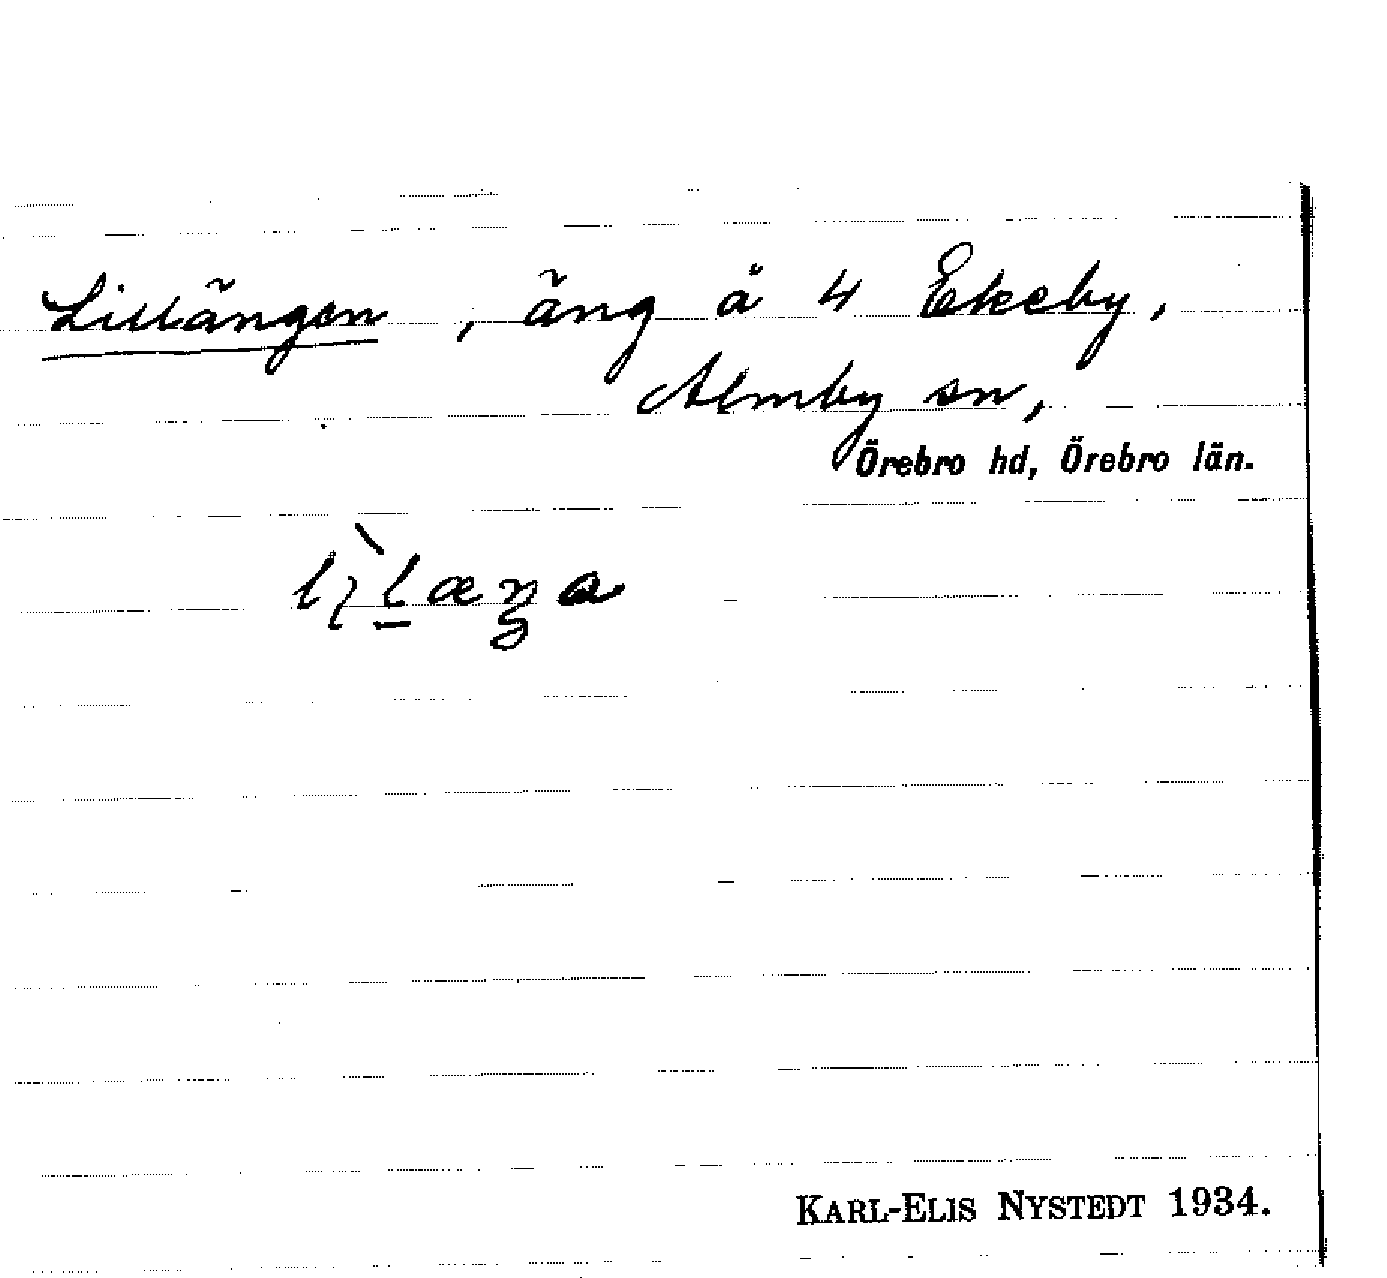 Lillängen, äng å 4 Ekeby,
Almby sn,
Örebro hd, Örebro län.
KARL-ELIS NYSTEDT 1934.